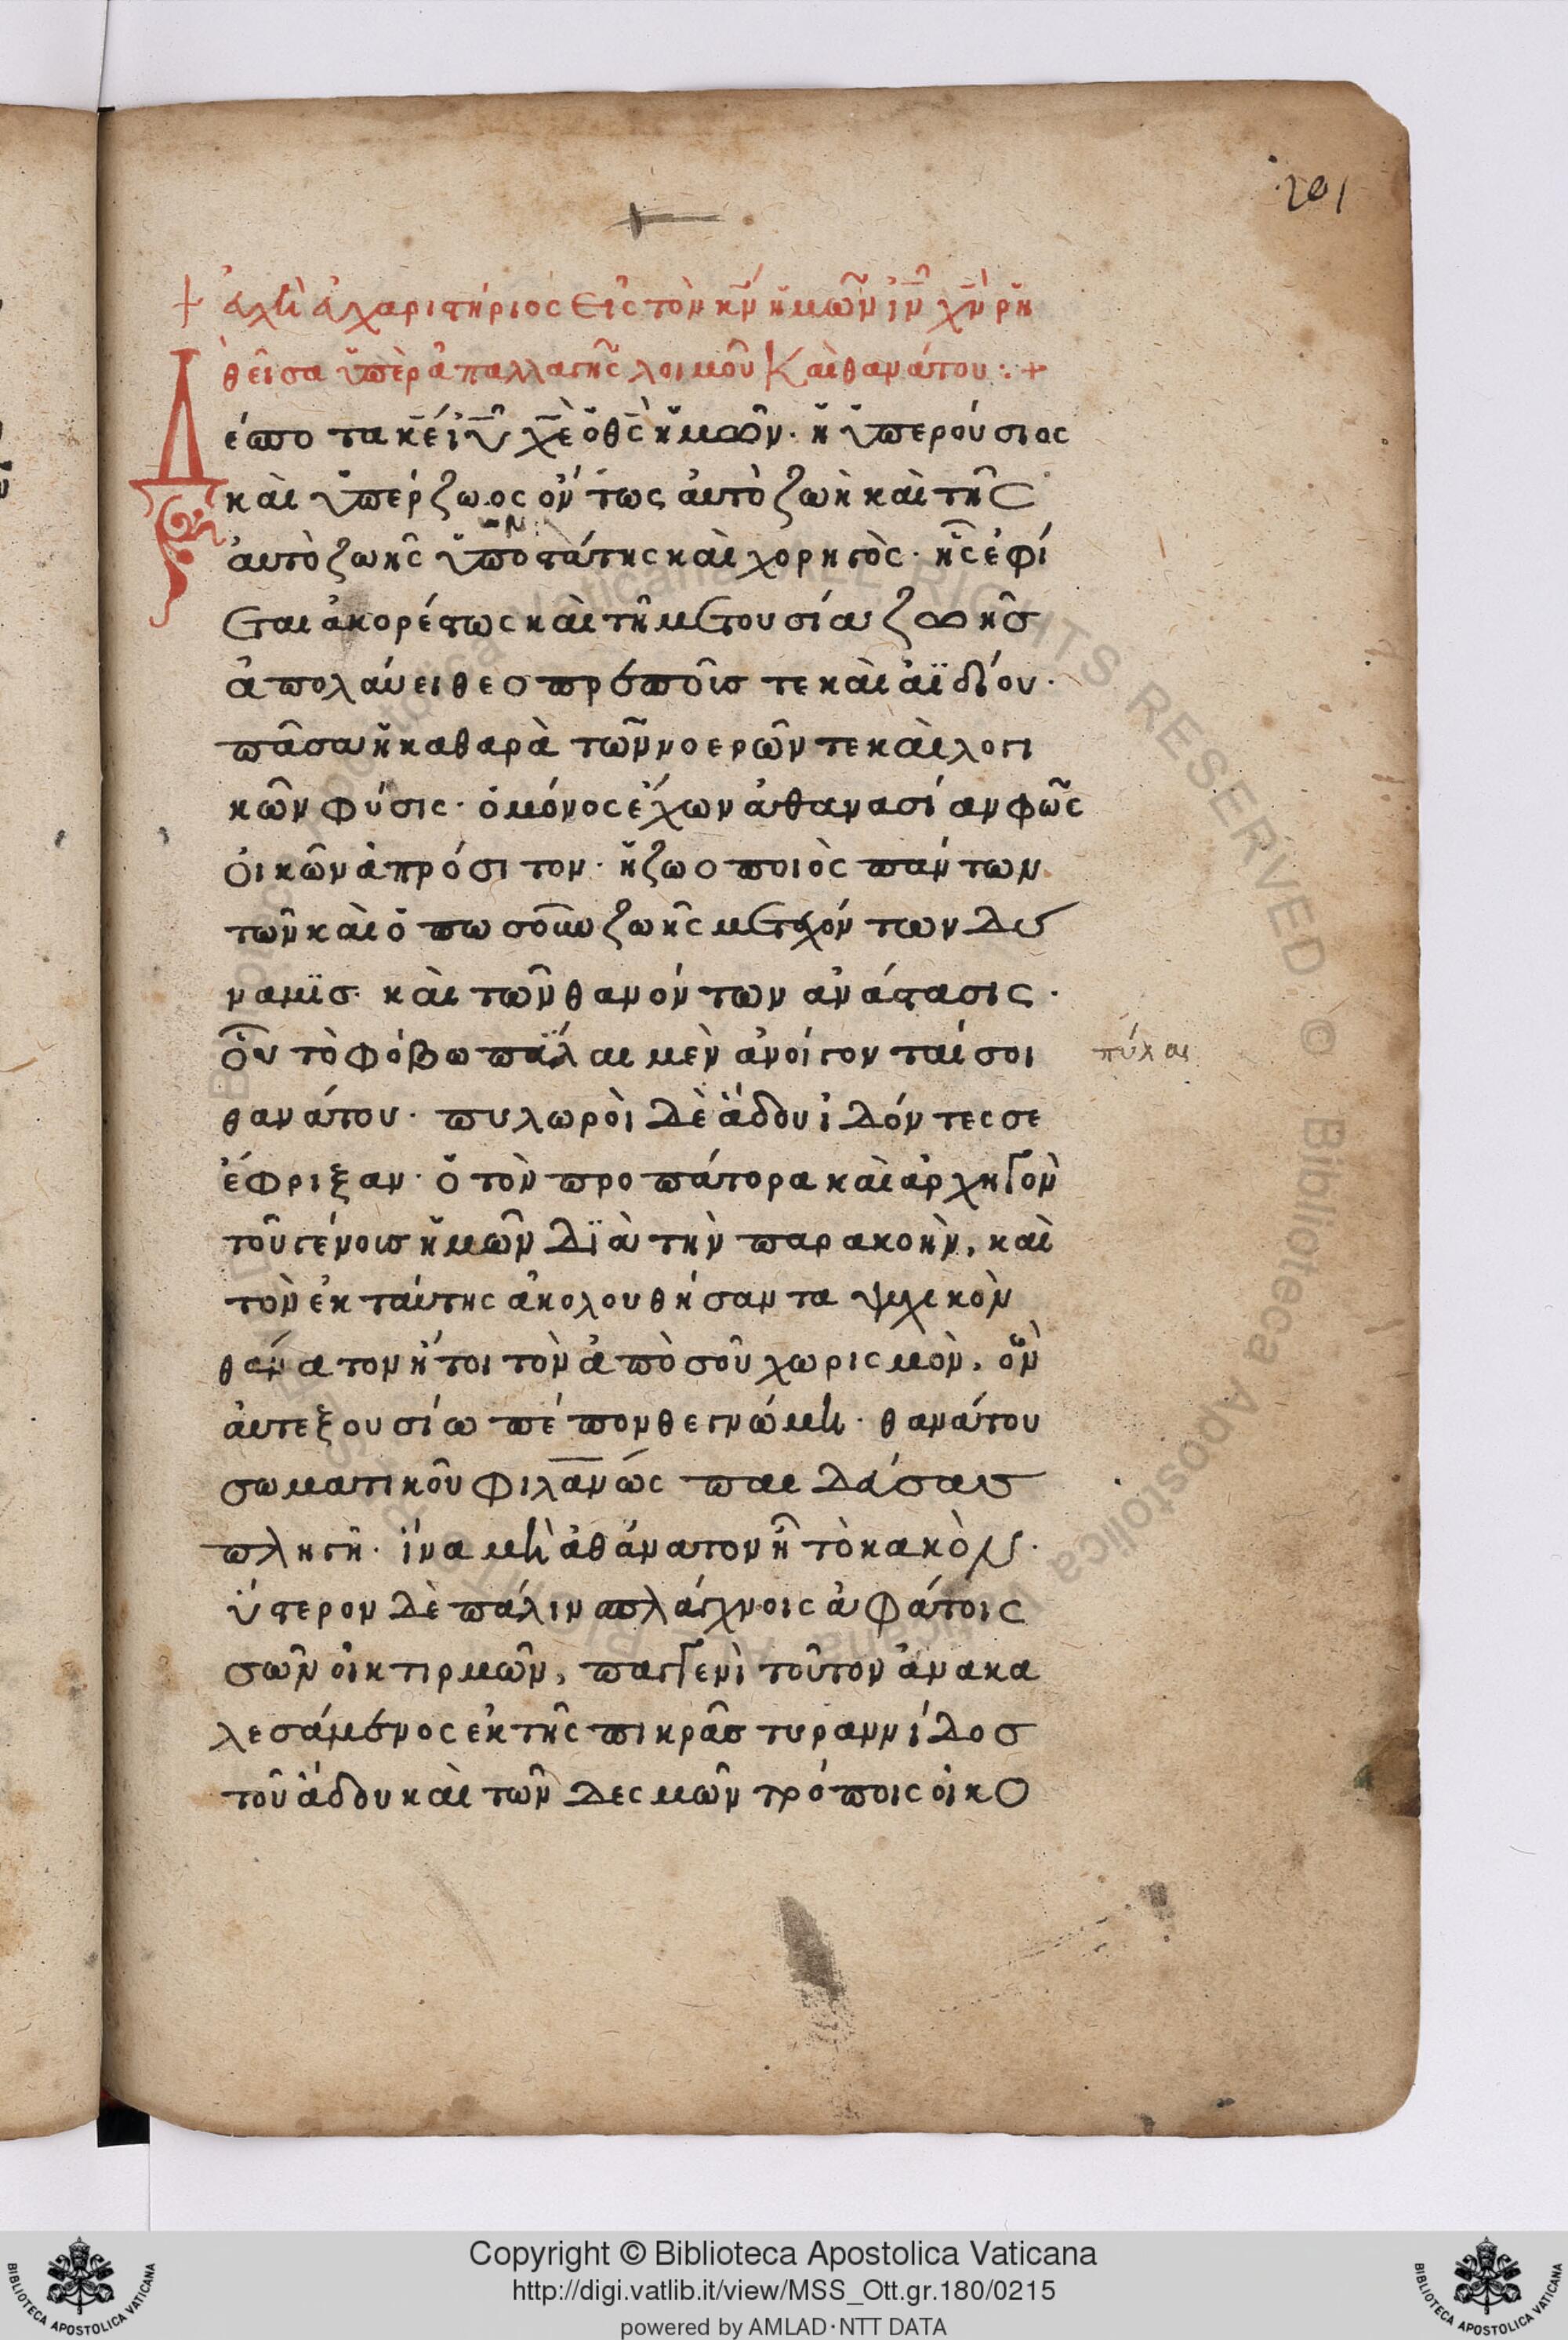 201
+ ἐυχὴ ἐυχαριστήριος εἰς τὸν κν̄ ἡμῶν ιν̄ χν̄ ρη
θεῖσα ὑπὲρ ἀπαλλαγῆς λοιμοῦ καὶ θανάτου : +
Δέσποτα κε̄ ιῦ χε̄ ὁ θς̄ ἡμῶν · ἡ ὑπερούσιος
καὶ ὑπέρζωος ὄντως αὐτὸζωὴ καὶ τῆς
αὐτὸζωῆς ὑποστάτης καὶ χορηγὸς · ἧς ἐφί
εται ἀκορέστως καὶ τῆ μετουσία ζωῆσ
ἀπολαύει θεοπρόποῦσ τε καὶ ἀϊδίου ·
πᾶσα ἡ καθαρὰ τῶν νοερῶν τε καὶ λογι
κῶν φύσις · ὁ μόνος ἔχων ἀθανασίαν φῶς
οἰκῶν ἀπρόσιτον · ἡ ζωοποιὸς πάντων
τῶν καὶ ὁπωσοῦν ζωῆς μετεχόντων δύ
ναμϊσ · καὶ τῶν θανόντων ἀνάστασις ·
οὗ τὸ φόβω πάλαι μὲν ἀνοίγονταί σοι πύλαι
θανάτου · πυλωροὶ δὲ ἅδου ἰδόντες σε
ἔφριξαν · ὁ τὸν προπάτορα καὶ ἀρχηγὸν
τοῦ γένουσ ἡμῶν δϊὰ τὴν παρακοὴν, καὶ
τὸν ἐκ ταύτης ἀκολουθήσαντα ψυχικὸν
θάνατον ἤτοι τὸν ἀπὸ σοῦ χωρισμὸν, ὃν
αὐτεξουσίω πέπονθε γνώμη · θανάτου
σωματικοῦ φιλαν̄ώς παιδεύσασ
πληγῆ · ἵνα μὴ ἀθάνατον ἦ τὸ κακὸν ·
ὕστερον δὲ πάλιν σπλάγχνοις ἀφάτοις
σῶν οἰκτιρμῶν, παγγενὶ τοῦτον ἀνακα
λεσάμενος ἐκ τῆς πικρᾶσ τυραννίδοσ
τοῦ ἅδου καὶ τῶν δεσμῶν τρόποις οἰκο
Copyright © Biblioteca Apostolica Vaticana
http://digi.vatlib.it/view/MSS_Ott.gr.180/0215
powered by AMLAD·NTT DATA